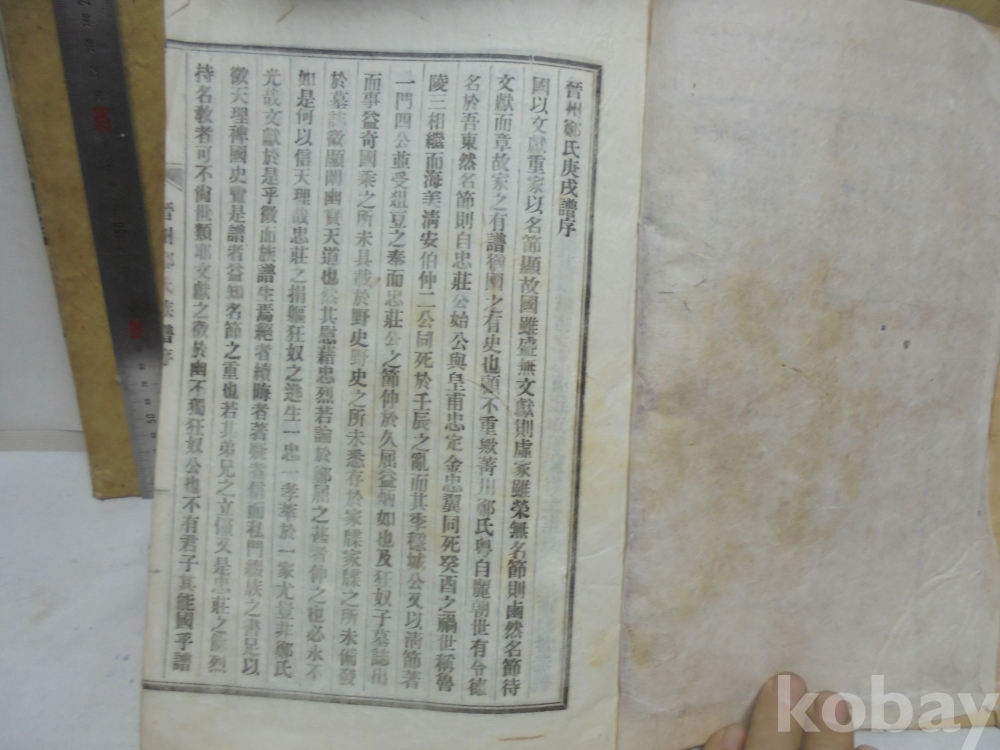 晉州鄭氏庚戌譜序
國以文獻重家以名節顯故國雖盛無文獻則虛家雖榮無名節則鹵然名節待
文獻而章故家之有譜猶國之有史也顧不重歟菁川鄭氏粤自麗朝世有令德
名於吾東然名節則自忠莊公始公與皇甫忠定金忠翼同死癸酉之禍世稱魯
陵三相繼而海美淸安伯仲二公同死於壬辰之亂而其季穩城公又以淸節著
一門四公並受俎豆之奉而忠莊公之節伸於久屈益烱如也及狂奴子墓誌出
而事益奇國乘之所未具載於野史野史之所未悉存於家牒家牒之所未備發
於墓誌徵顯闡幽實天道也然其慰藉忠烈若論於鄭屈之甚者伸之也必永不
如是何以信天理哉忠莊之捐軀狂奴之逃生一忠一孝萃於一家尤豈非鄭氏
光哉文獻於是乎徵而族譜生焉絕者續晦者著 者信而私門 族之書足以
徵天理裨國史 是譜者益知名節之重也若其弟兄之立 又是忠莊之 烈
持名敎者可不 世類耶文獻之徵於幽不獨狂奴公也不有君子其能國乎譜
晉州鄭氏族譜序
kobay